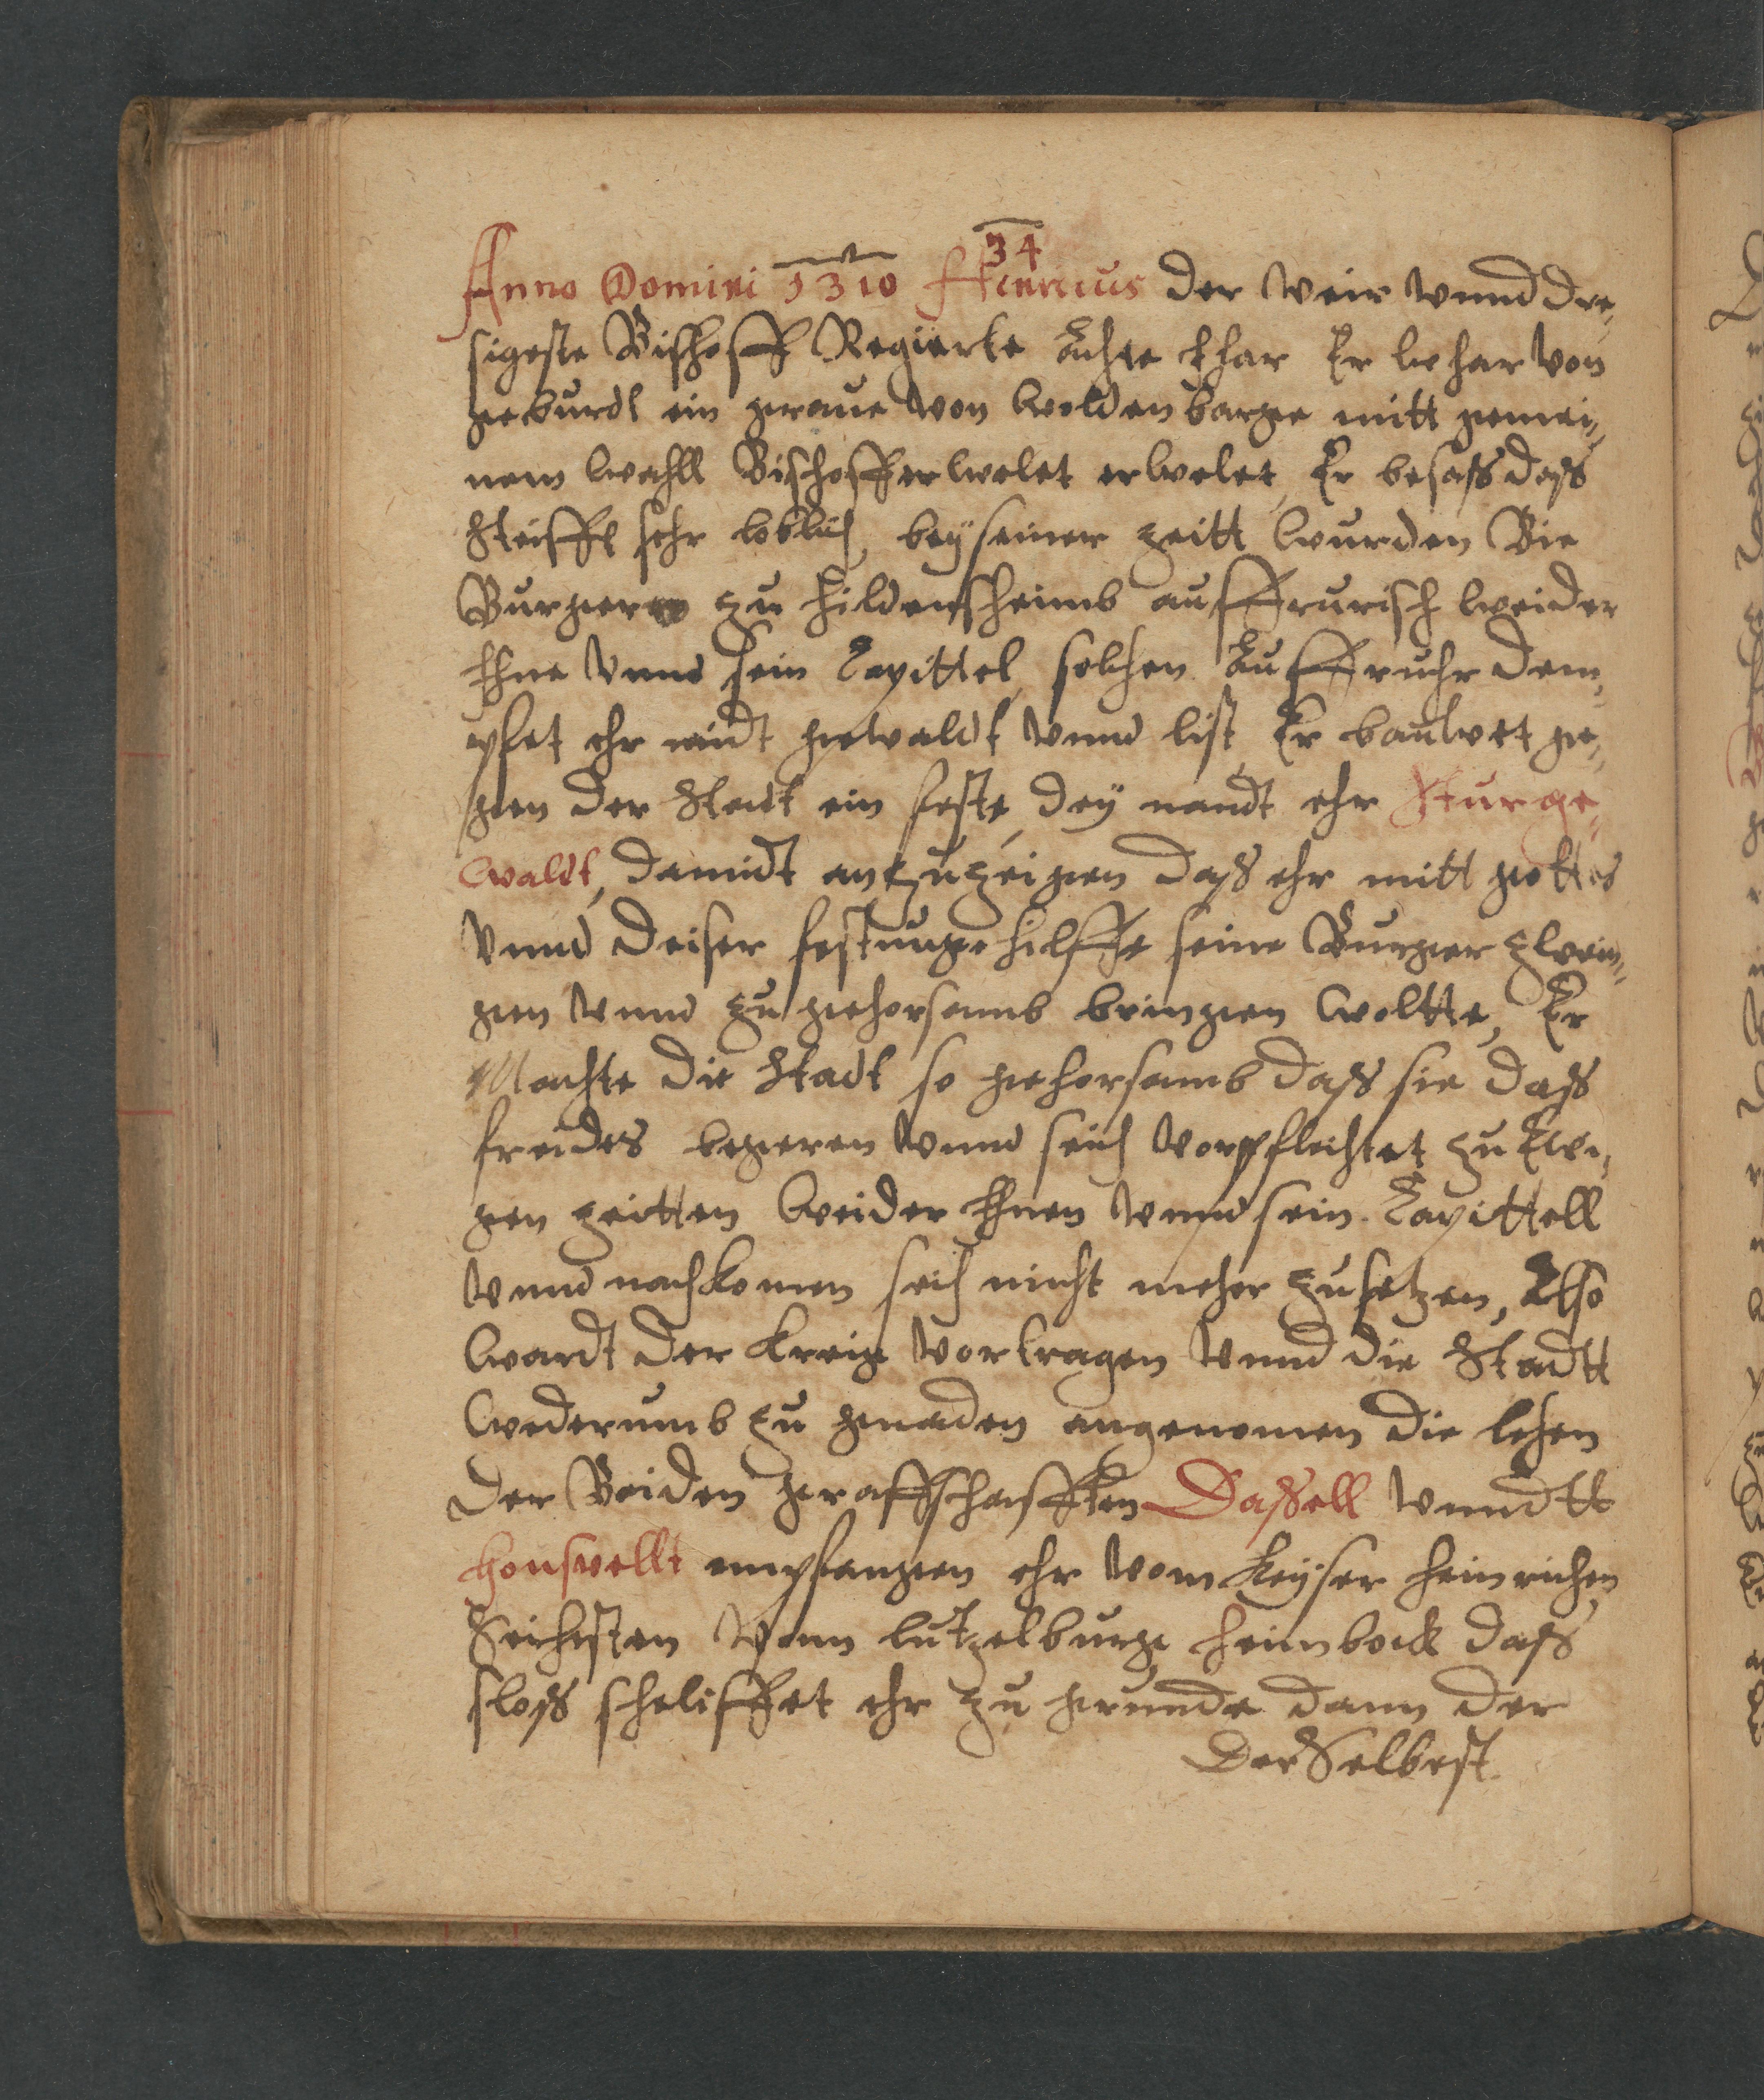 34
Anno Domini 1310 Henricus der veir vnnd dre,
sigeste Bischoff Regierte Achte Ihar Er whar von
geburdt ein graue von woldenbarge mitt gemei,
nem wahll Bischoff erwelet erwelet, Er besaß daß
Steifft sehr loblich, bey seiner zeitt wurden Die
Burgere zu Hildensheimb auffrurisch weider
Ihne vnnd sein Capittel, solchen Auffruhr dem,
pfet ehr midt gewaldt vnnd list, Er bauwet ge,
gen der Stadt ein feste, dey nandt ehr Stur ge,
waldt, damidt anzuzeigen daß ehr mitt gottes
vnnd deiser festunge hilffe seine Burger zwein,
gen vnnd zu gehorsamb bringen woltte, Er
Machte die Stadt so gehorsamb daß sie daß
freides begeren vnnd seich vorpflichtet zu Ewi,
gen zeitten weider Ihnen vnnd sein Capittell
vnnd nachkomen seich nicht meher zusetzen, Also
wardt der kreig vortragen vnnd die Stadtt
wederumb zu gnaden angenomen die lehen
der Beiden graffschafften Daßell vnndtt
honsvellt empfangen ehr vom keyser heinrichen
Seichsten vonn lutzelburge heimbock daß
sloß scheliffet ehr zu grunde dann der
Der Selbest